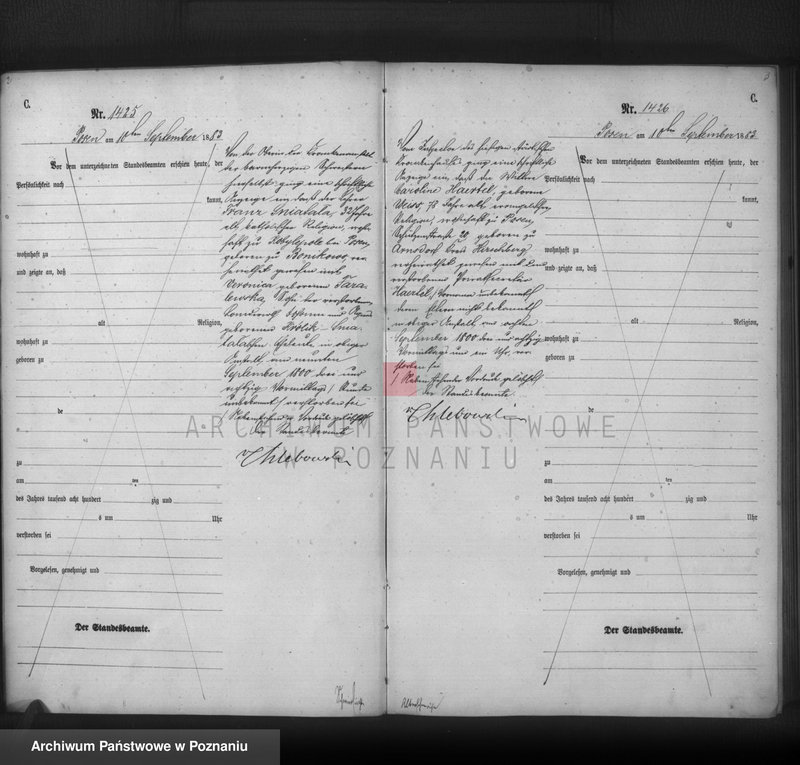 C.
Nr. 1425
Posen am 10ten September 1883
Vor dem unterzeichneten Standesbeamten erschien heute, der
Persönlichkeit nach
kannt,
wohnhaft zu
und zeigte an, daß
alt Religion,
wohnhaft zu
geboren zu
de
zu
am ten
des Jahres tausend acht hundert zig und
s um Uhr
verstorben sei
Vorgelesen, genehmigt und
Der Standesbeamte.
Von der Oberin der Krankenanstalt
der barmherzigen Schwestern
hierselbst ging eine schriftliche
Anzeige ein, daß der
Franz
alt, katholischer Religion, wohn
haft zu bei Posen,
geboren zu ver
heirathet gewesen mit
Veronica geborenen Tara
Sohn der verstorbenen
geborenen
Eheleute in obiger
Anstalt am neunten
September 1800 drei und
achtzig Vormittags Stunde
unbekannt verstorben sei
Vordruck gelöscht.
Der Standesbeamte
v Chlebowski
C.
Nr. 1426
Posen am 10ten September 1883
Vor dem unterzeichneten Standesbeamten erschien heute, der
Persönlichkeit nach
kannt,
wohnhaft zu
und zeigte an, daß
alt Religion,
wohnhaft zu
geboren zu
de
zu
am ten
des Jahres tausend acht hundert zig und
s um Uhr
verstorben sei
Vorgelesen, genehmigt und
Der Standesbeamte.
Vom Inspector des hiesigen städtischen
Krankenhauses ging eine schriftliche
Anzeige ein, daß die Wittwe
Caroline Haertel, geborene
Weiss, 78 Jahre alt, evangelischer
Religion, wohnhaft zu Posen,
Schützenstraße 20, geboren zu
Arnsdorf Kreis Hirschberg
verheirathet gewesen mit dem
verstorbenen Privatsecretair
Haertel, Vorname unbekannt
deren Eltern nicht bekannt
in obiger Anstalt am achten
September 1800 drei und achtzig
Vormittags um ein Uhr, ver
storben sei
Vordruck gelöscht
Der Standesbeamte
v Chlebowski
ARCHIWUM PAŃSTWOWE
W POZNANIU
Archiwum Państwowe w Poznaniu